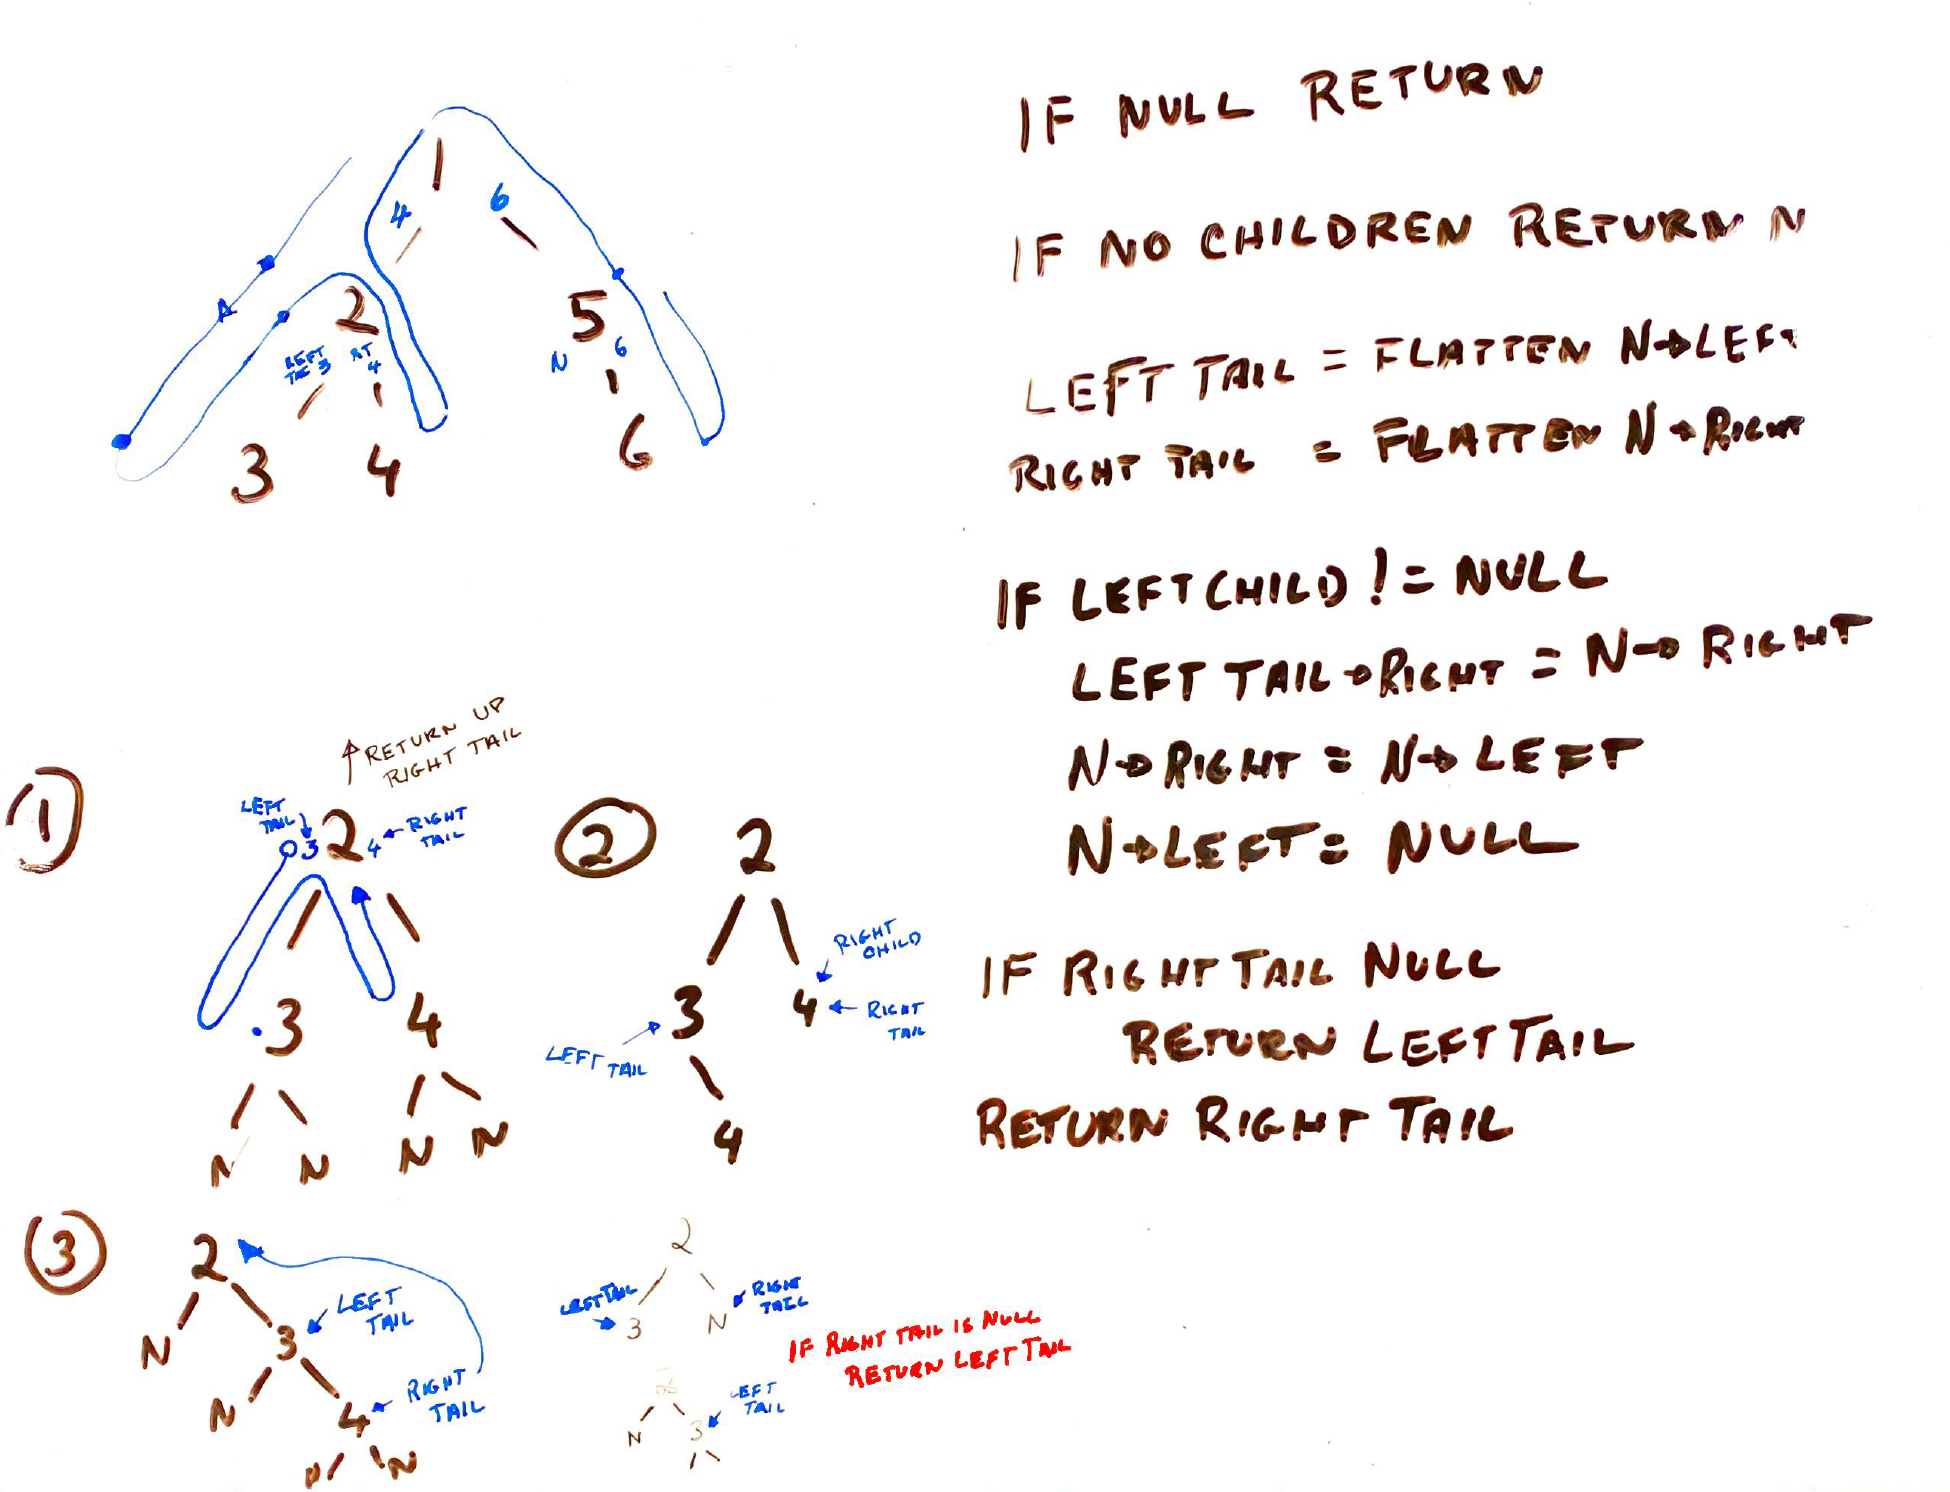 IF NULL RETURN
IF NO CHILDREN RETURN N
LEFT TAIL = FLATTEN N→LEFT
RIGHT TAIL = FLATTEN N→RIGHT
IF LEFT CHILD != NULL
LEFT TAIL→RIGHT = N→RIGHT
N→RIGHT = N→LEFT
N→LEFT = NULL
IF RIGHT TAIL NULL
RETURN LEFT TAIL
RETURN RIGHT TAIL
1
4 6
2 5
LEFT RT
3 4
N 6
3 4 6
1
↑ RETURN UP
RIGHT TAIL
LEFT
TAIL
3 2 4 ← RIGHT
TAIL
3 4
N N N N
2
2
RIGHT
CHILD
3 4 ← RIGHT
TAIL
LEFT TAIL
4
3
2
LEFT
TAIL
N 3
N 4
RIGHT
TAIL
N
2
LEFT TAIL
3 N
RIGHT
TAIL
IF RIGHT TAIL IS NULL
RETURN LEFT TAIL
LEFT
TAIL
N 3